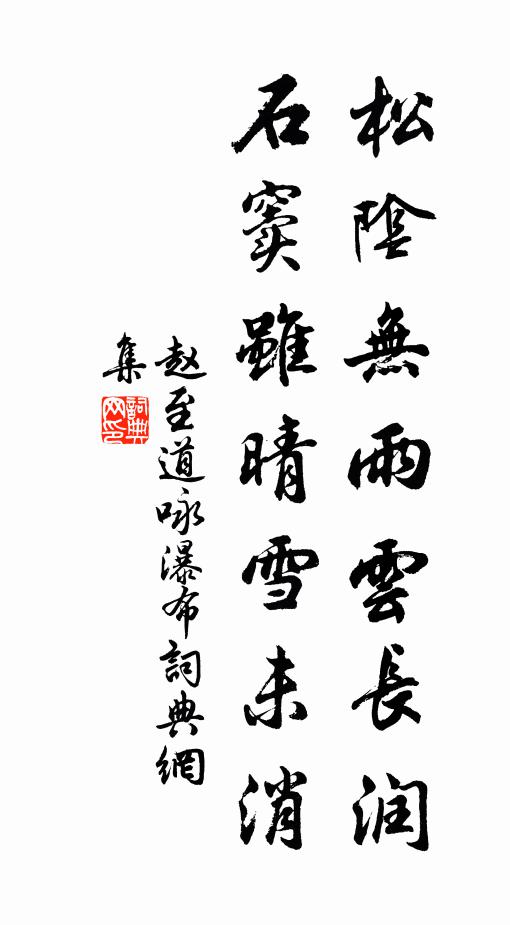 松陰無雨雲長润
石竇雖晴雪未消
赵至道咏瀑布詞典網
集
詞典網印